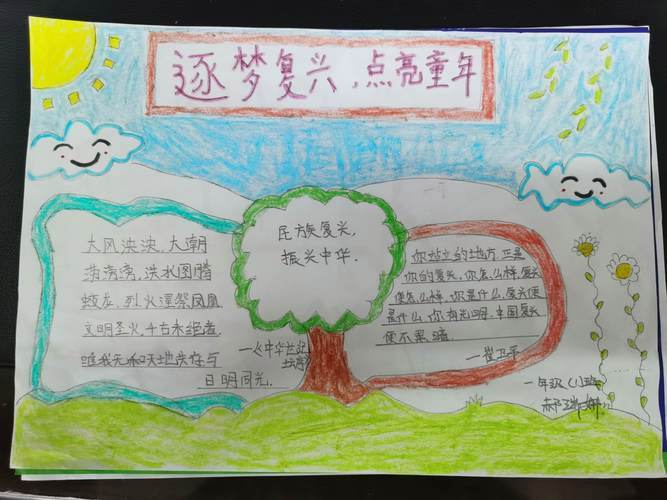 逐梦复兴,点亮童年
大风泱泱,大潮
滂滂,洪水图腾
蛟龙,烈火涅槃凤凰
文明圣火,千古未绝者
唯我无
天地共存与
日月同光.
—《中华世纪
民族复兴,
振兴中华.
你站立的地方,正是
你的复兴,你怎么样,复兴
便怎么样,你是什么,复兴便
是什么,你有光明,中国复兴
便不黑暗.
—崔卫平
一年级(1)班